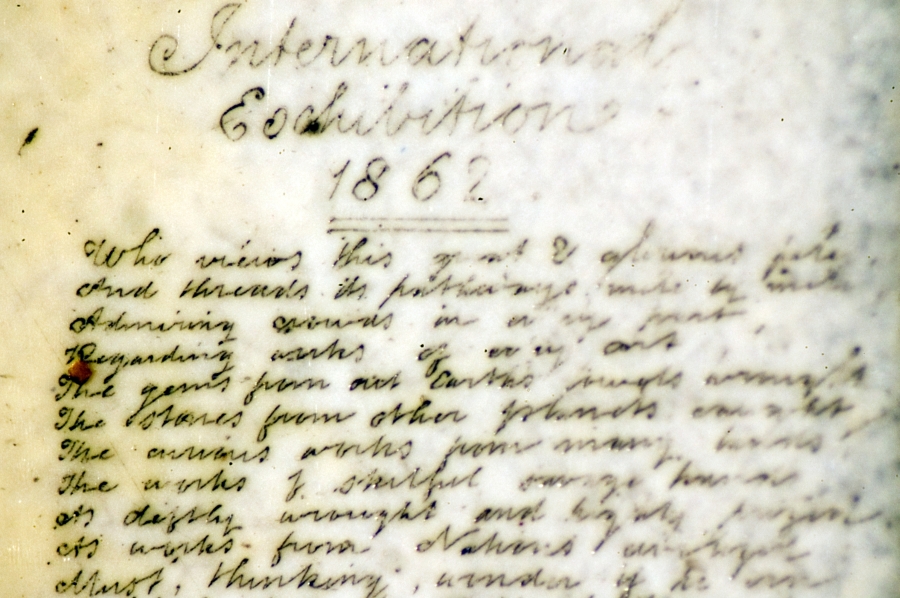 International
Exhibition
1862
Who views this great & glorious pile
And threads its pathways mile by mile
Admiring crowds in every part
Regarding works of every art
The gems from out Earth's bowels
The stones from other planets caught
The curious works from many lands
The works of skilful savage hands
As deftly wrought and highly
As works from Nations
Must, thinking, wonder if he